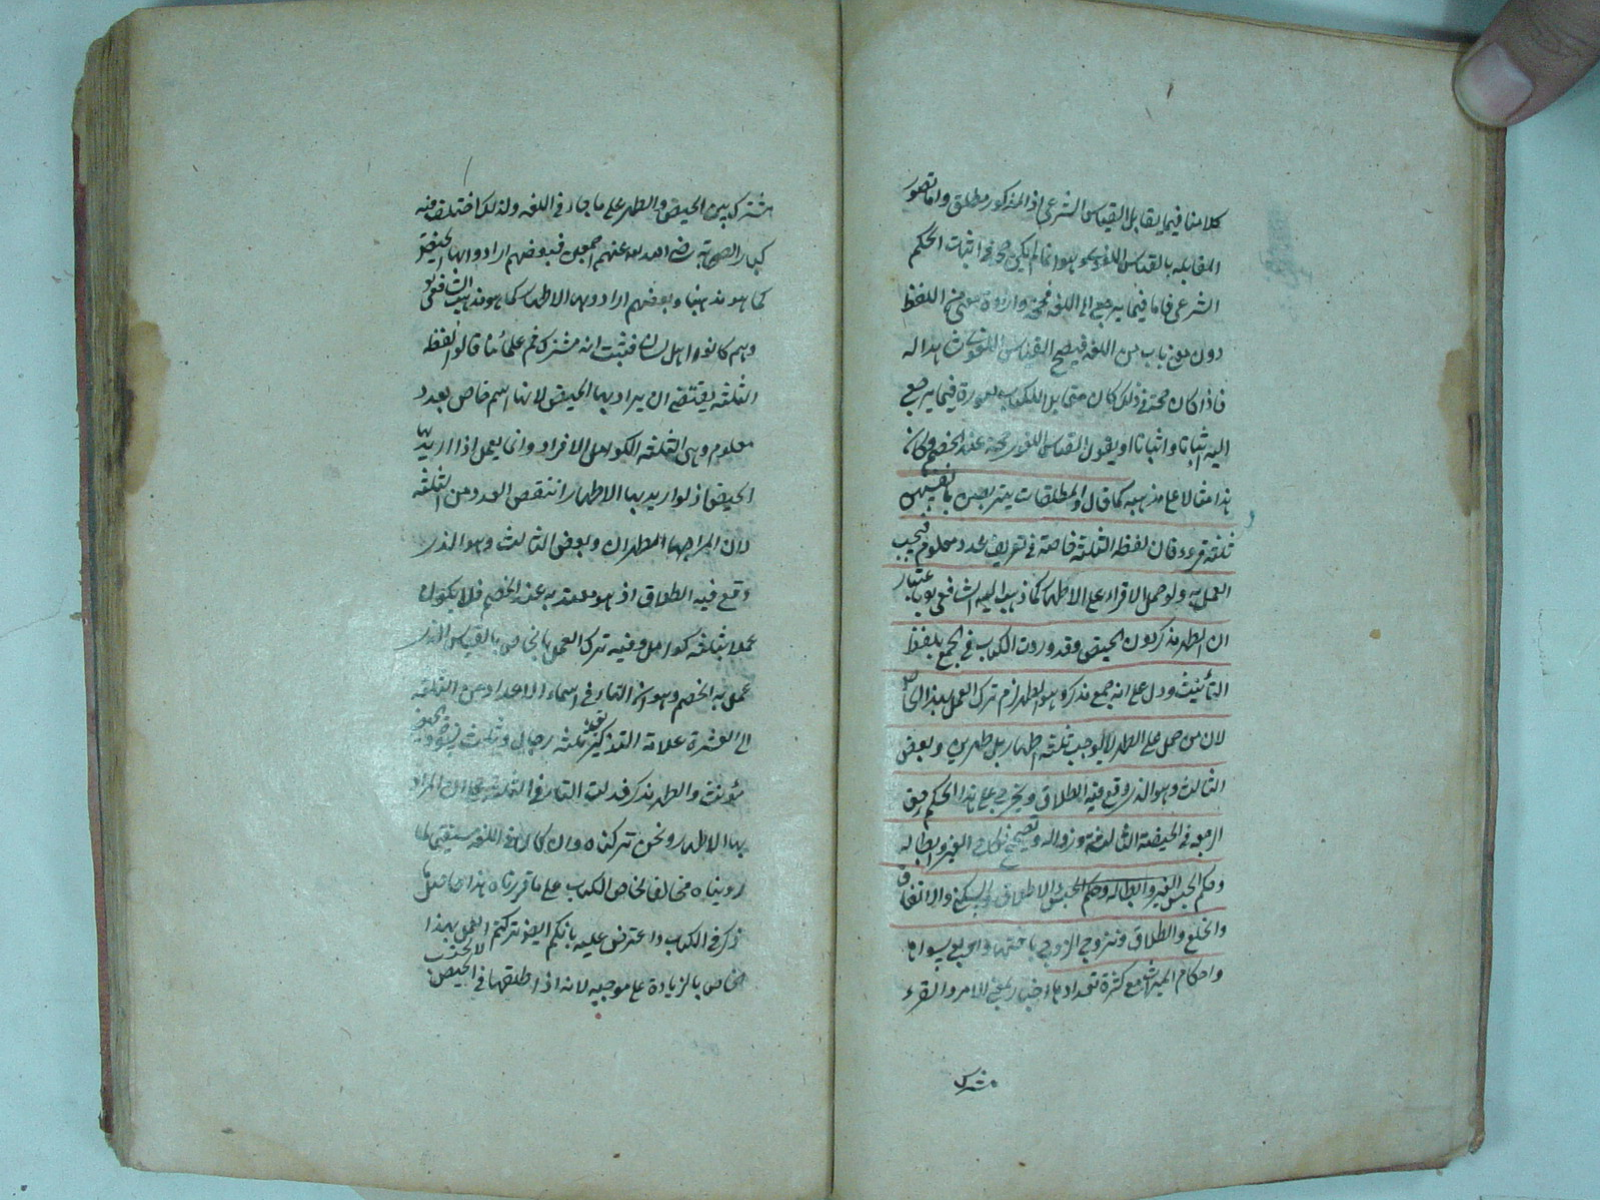 كلامنا فيما يقابل القياس الشرعي اذ المذكور مطلق واما تصور
المقابله بالقياس اللغوي هو انما لم يكن حجة في اثبات الحكم
الشرعي فاما فيما يرجع الى اللغه فحجة من اللفظ
دون من باب من اللغه فيصح القياس اللغوي هذا له
فاذا كان حجة في ذلك كان مقابل الكتاب صورة فيما يرجع
اليه اثباتا او يقول القياس اللغوي حجة عند الخصم وكان
هذا مثالا على مذهبه كما قال والمطلقات يتربصن بانفسهن
ثلثة قروء فان لفظه الثلثة خاصة في تعريف عدد معلوم فيجب
العمل به ولو حمل الاقراء على الاطهار كما ذهب اليه الشافعي باعتبار
ان الطهر مذكر دون الحيض وقد وردت الكتاب في الجمع بلفظ
التأنيث ودل على انه جمع مذكر وهو الطهر لزم ترك العمل بهذا الخاص
لان من حمل على الطهر لا يوجب ثلثة اطهار بل طهرين وبعض
الثالث وهو الذي وقع فيه الطلاق ويخرج على هذا الحكم حق
الرجعه في الحيضة الثالثة وزواله وتصحيح نكاح الغير وابطاله
وحكم الحبس والاطلاق والسكنى والانفاق
والخلع والطلاق وتزوج الزوج باختها واربع سواها
واحكام الميراث مع كثرة تعدادها اخذ بمعنى الامر والقرء
مشترك
مشترك بين الحيض والطهر على ما جاء في اللغه ولذلك اختلف فيه
كبار الصحابة رضي الله عنهم اجمعين فبعضهم ارادوا بها الحيضة
كما هو مذهبنا وبعضهم ارادوا بها الاطهار كما هو مذهب الشافعي
وهم كانوا اهل لسان فثبت انه مشترك ثم علمائنا قالوا لفظه
الثلثه يقتضي ان يراد بها الحيض لانها اسم خاص بعدد
معلوم وهي الثلثه الكوامل الافراد وانما يعمل اذا اريد بها
الحيض اذ لو اريد بها الاطهار انتقص العدد من الثلثه
لان المراد بها الطهران وبعض الثالث وهو الذي
وقع فيه الطلاق اذ هو معتد به عند الخصم فلا يكون
عملا بثلثه كوامل وفيه ترك العمل بالخاص بالقياس الذي
عمل به الخصم وهو ان التاء في اسماء الاعداد من الثلثه
الى العشرة علامة التذكير يقال ثلثة رجال وثلث نسوة والحيض
مؤنث والطهر مذكر فدلت التاء في الثلثه على ان المراد
بها الاطهار ونحن تركناه وان كان في اللغه مستقيما لما
روينا مخالفا لخاص الكتاب على ما قررناه هذا حاصل ما
ذكر في الكتاب واعترض عليه بانكم ايضا تركتم العمل بهذا
الخاص بالزيادة على موجبه لانه اذا طلقها في الحيض لا تحتسب